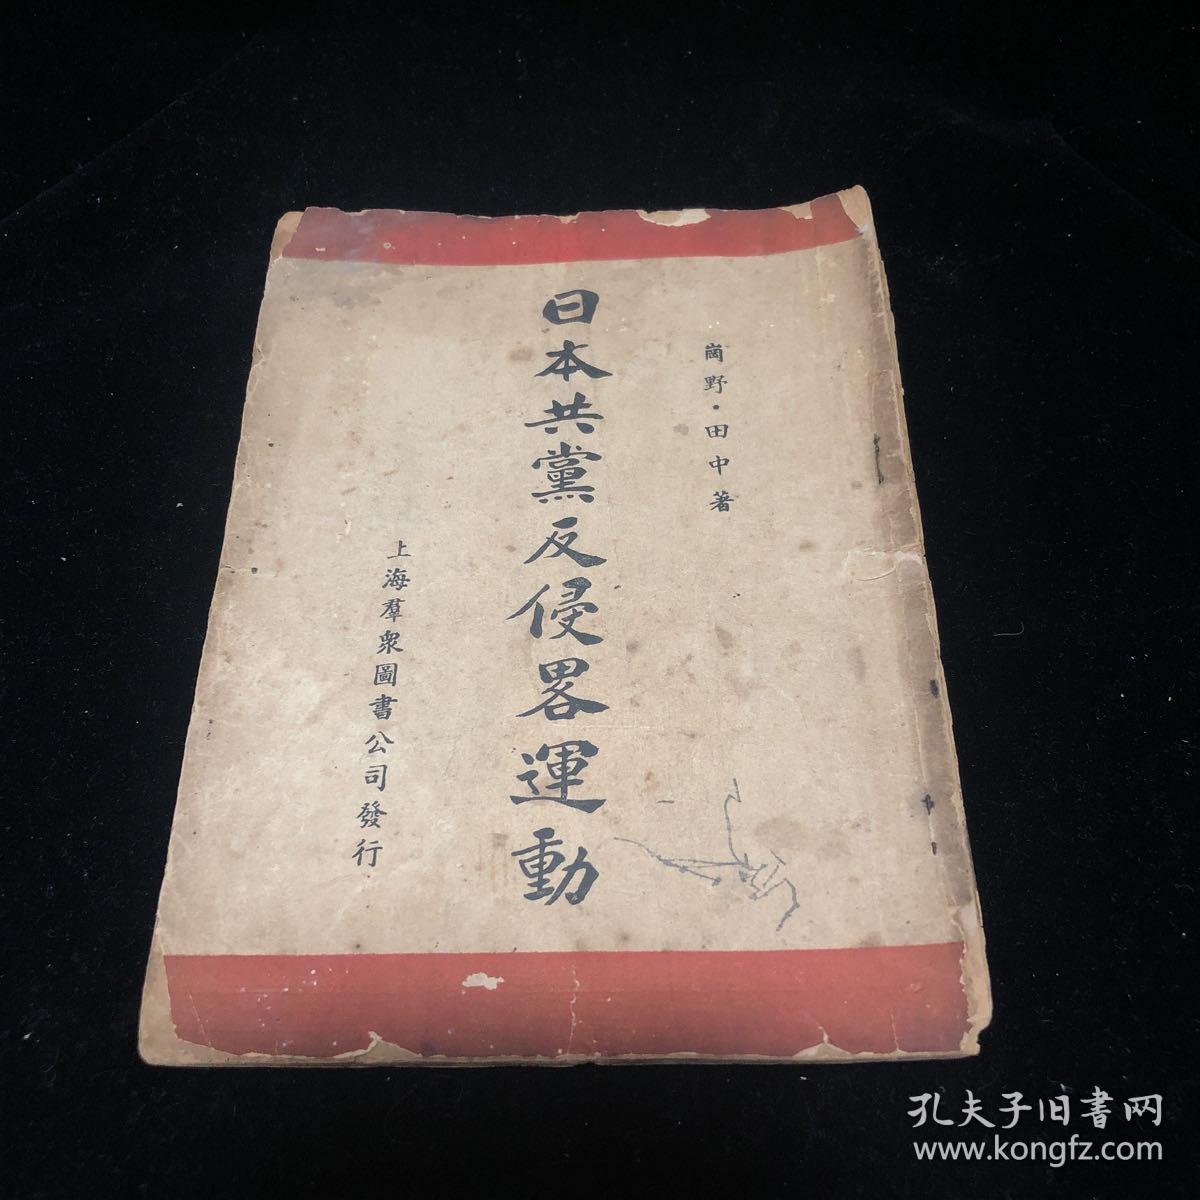 崗野·田中著
日本共黨反侵畧運動
上海羣衆圖書公司發行
孔夫子旧书网
www.kongfz.com